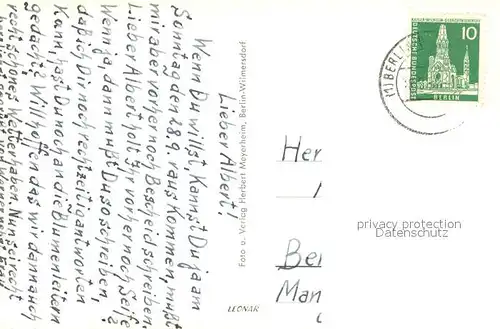 Lieber Albert!
Wenn Du willst, Kannst Du ja am
Sonntag den 28.9. raus Kommen, mußt
mir aber vorher noch Bescheid schreiben.
Lieber Albert holt Ihr vorher noch Seife?
Wenn ja dann mußt Du so schreiben,
daß ich Dir noch rechtzeitig antworten
Kann, hast Du noch an die Blumenleitern
gedacht? Will hoffen das wir dann auch
recht schönes Wetter haben. Nun sei recht
Foto u. Verlag Herbert Meyerheim, Berlin-Wilmersdorf
LEONAR
10
DEUTSCHE BUNDESPOST
BERLIN
(1) BERLI
Her
Ber
Man
privacy protection
Datenschutz